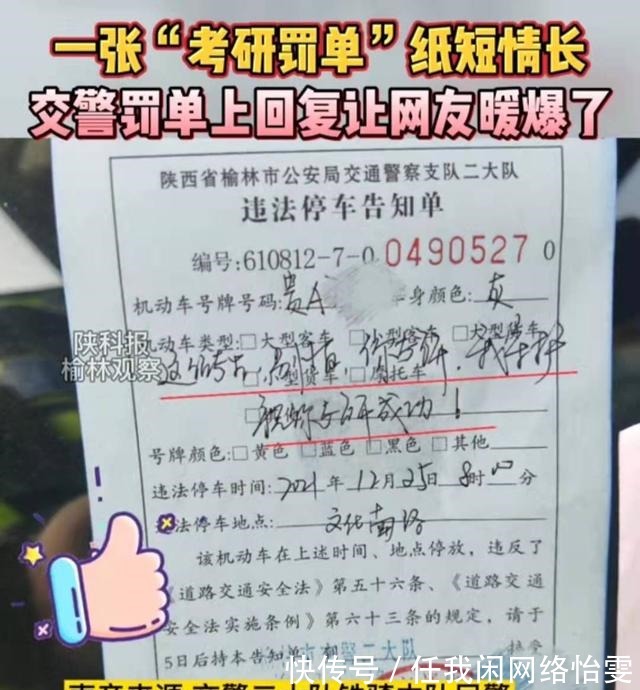 一张“考研罚单”纸短情长
交警罚单上回复让网友暖爆了
陕西省榆林市公安局交通警察支队二大队
违法停车告知单
编号:610812-7-0 0490527 0
机动车号牌号码:贵A 车身颜色:
陕科报
榆林观察
机动车类型:□大型客车 □小型客车 □大型货车
□小型货车 □摩托车
祝你考研成功!
号牌颜色:□黄色 □蓝色 □黑色 □其他
违法停车时间:2021年12月25日8时00分
违法停车地点:文化南路
该机动车在上述时间、地点停放,违反了
《道路交通安全法》第五十六条、《道路交通
安全法实施条例》第六十三条的规定,请于
5日后持本告知单到 二大队 接受
快传号/任我闲网络怡雯